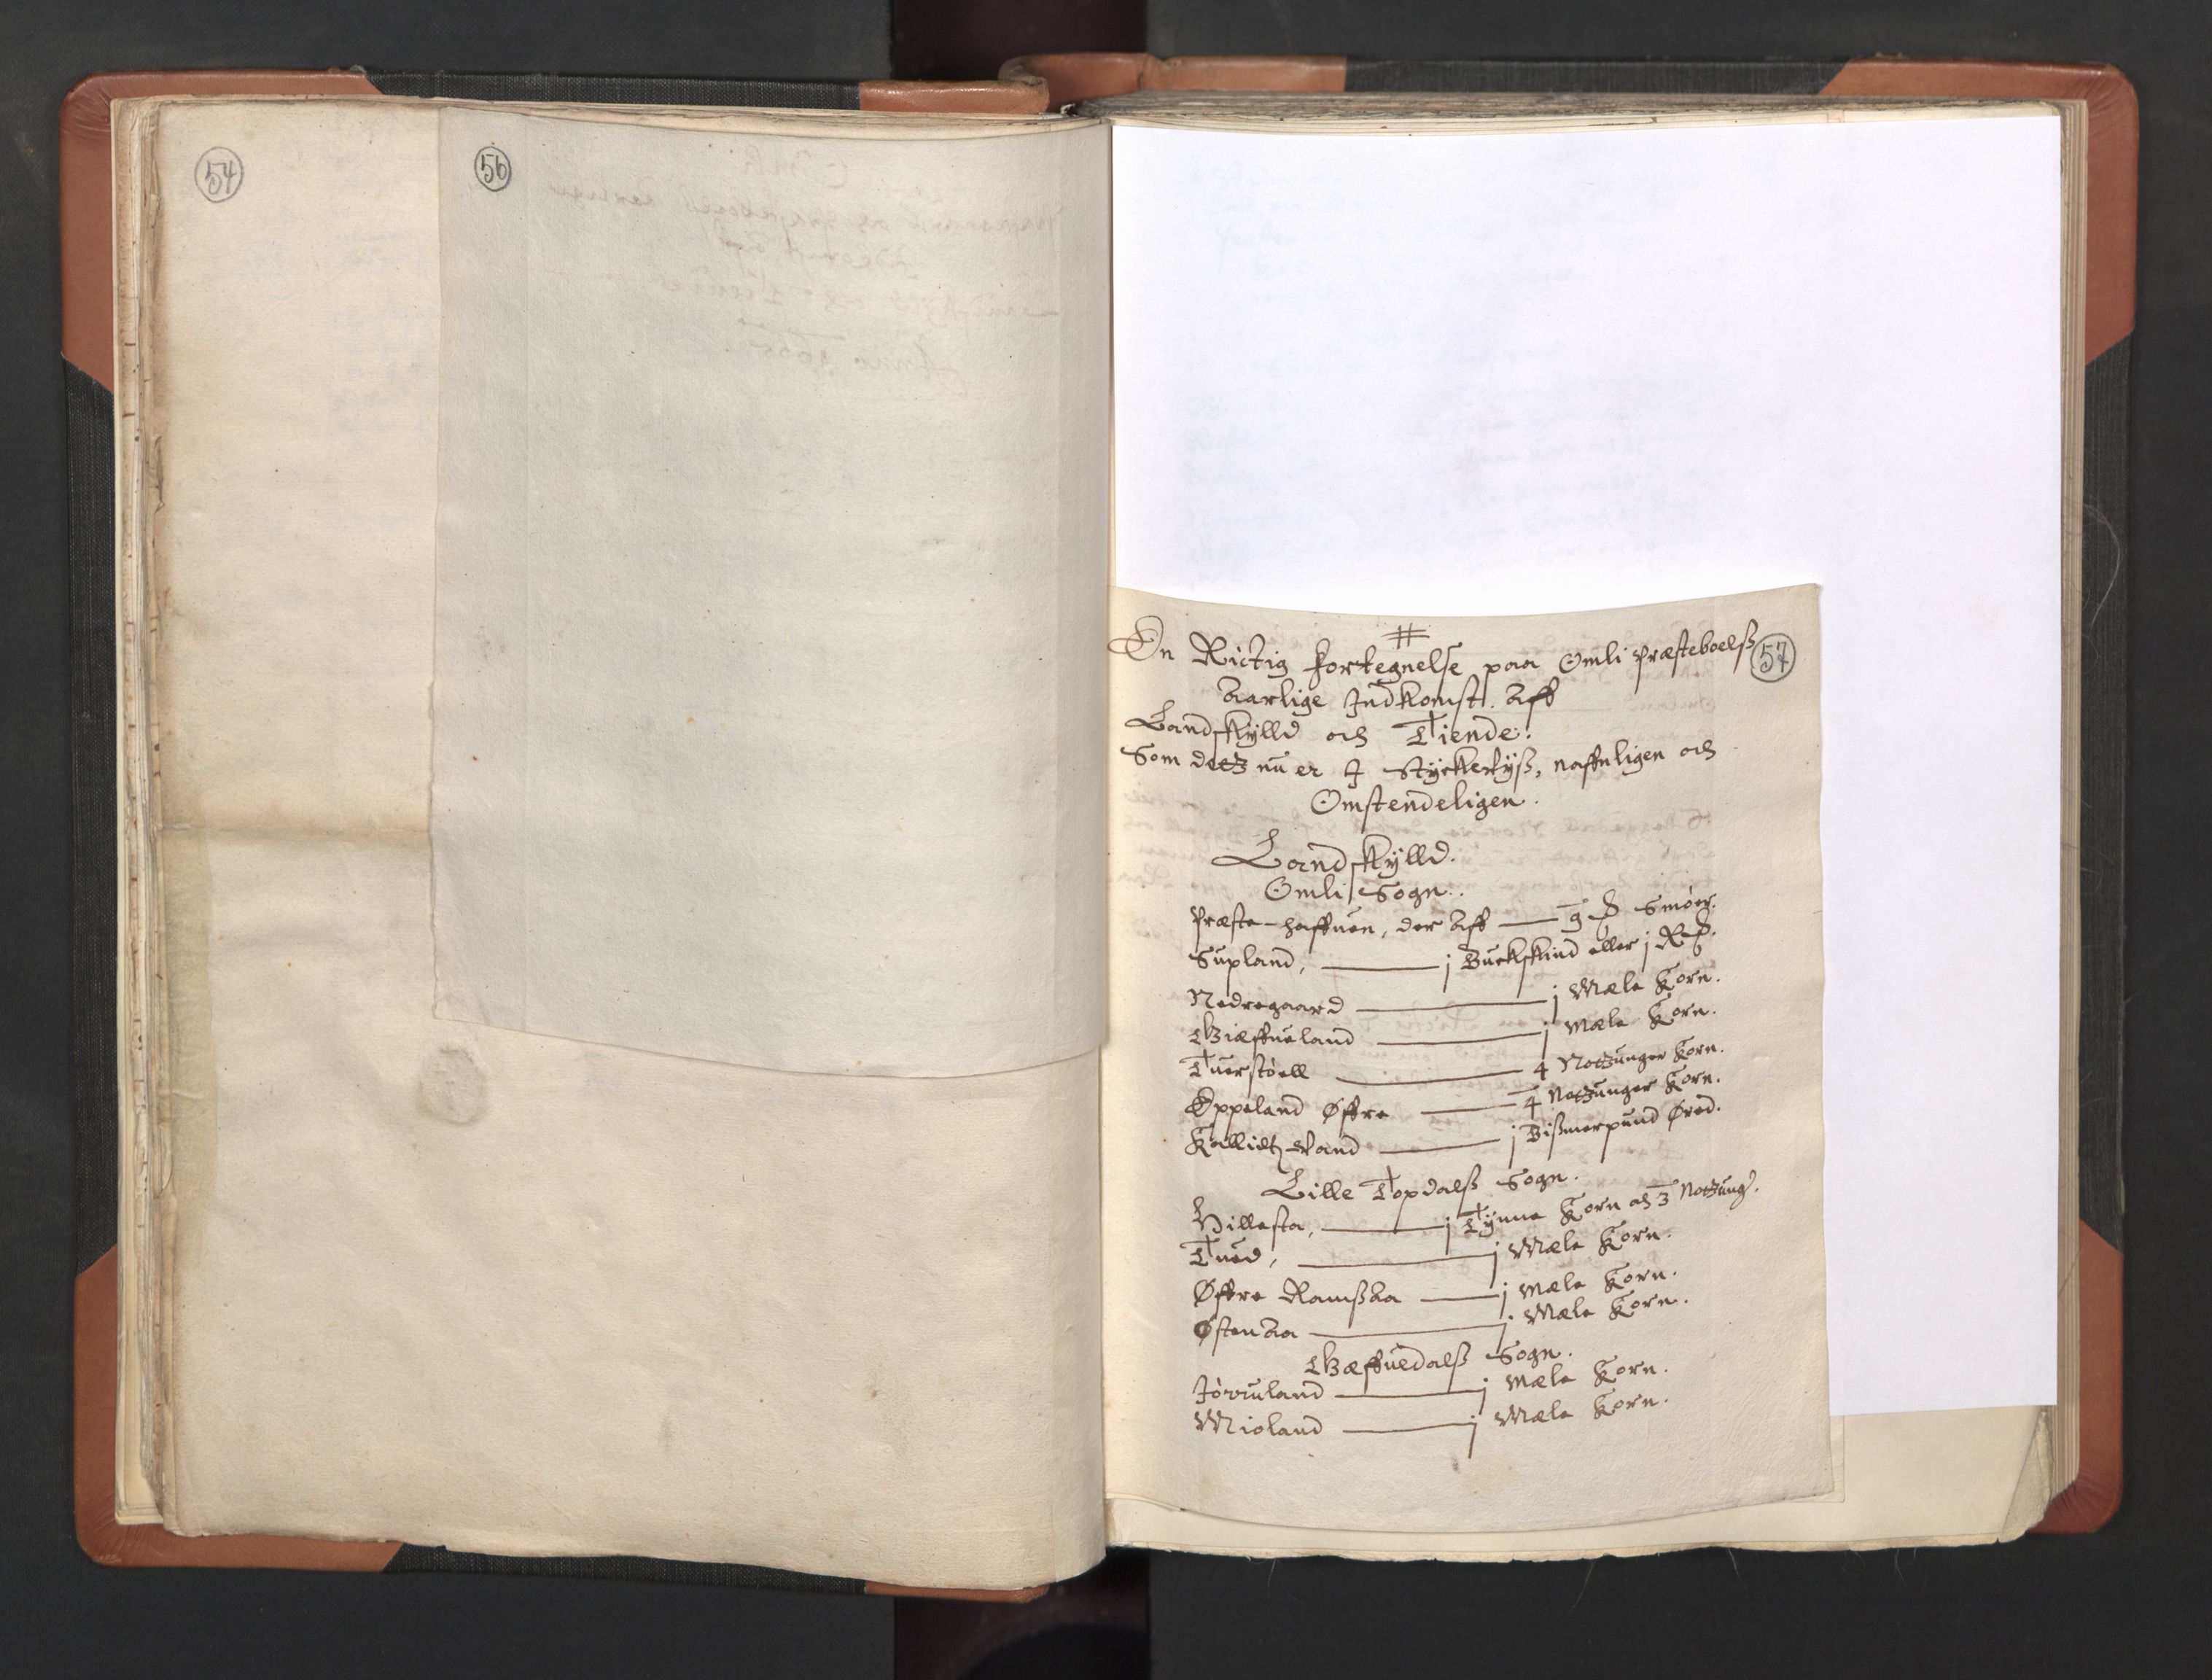 54
56
57
#
En Rictig fortegnelse paa Omli Præsteboelß
Aarlige Indkomst. Aff
Landskylld och Tiende:
Som detz nu er I Styckerlyß, naffnligen och
Omstendeligen.
Landskylld.
Omli Sogn.
Præste-haffuen, der Aff — 9 ℔ Smøer.
Supland, — j Buckskind eller j R℔.
Nedregaard — j Mæle Korn.
Giæffueland — j Mæle Korn.
Tuerstøell — 4 Notzunger Korn.
Eppeland Øffre — 4 Notzunger Korn.
Kallidtz-Vand — j Bißmerpund Øred.
Lille Topdalß Sogn.
Hillesta, — j Tynne Korn och 3 Notzung.
Tued, — j Mæle Korn.
Øffre Ramßaa — j Mæle Korn.
Østenaa — j Mæle Korn.
Gæffuedalß Sogn.
Jøruland — j Mæle Korn.
Mioland — j Mæle Korn.